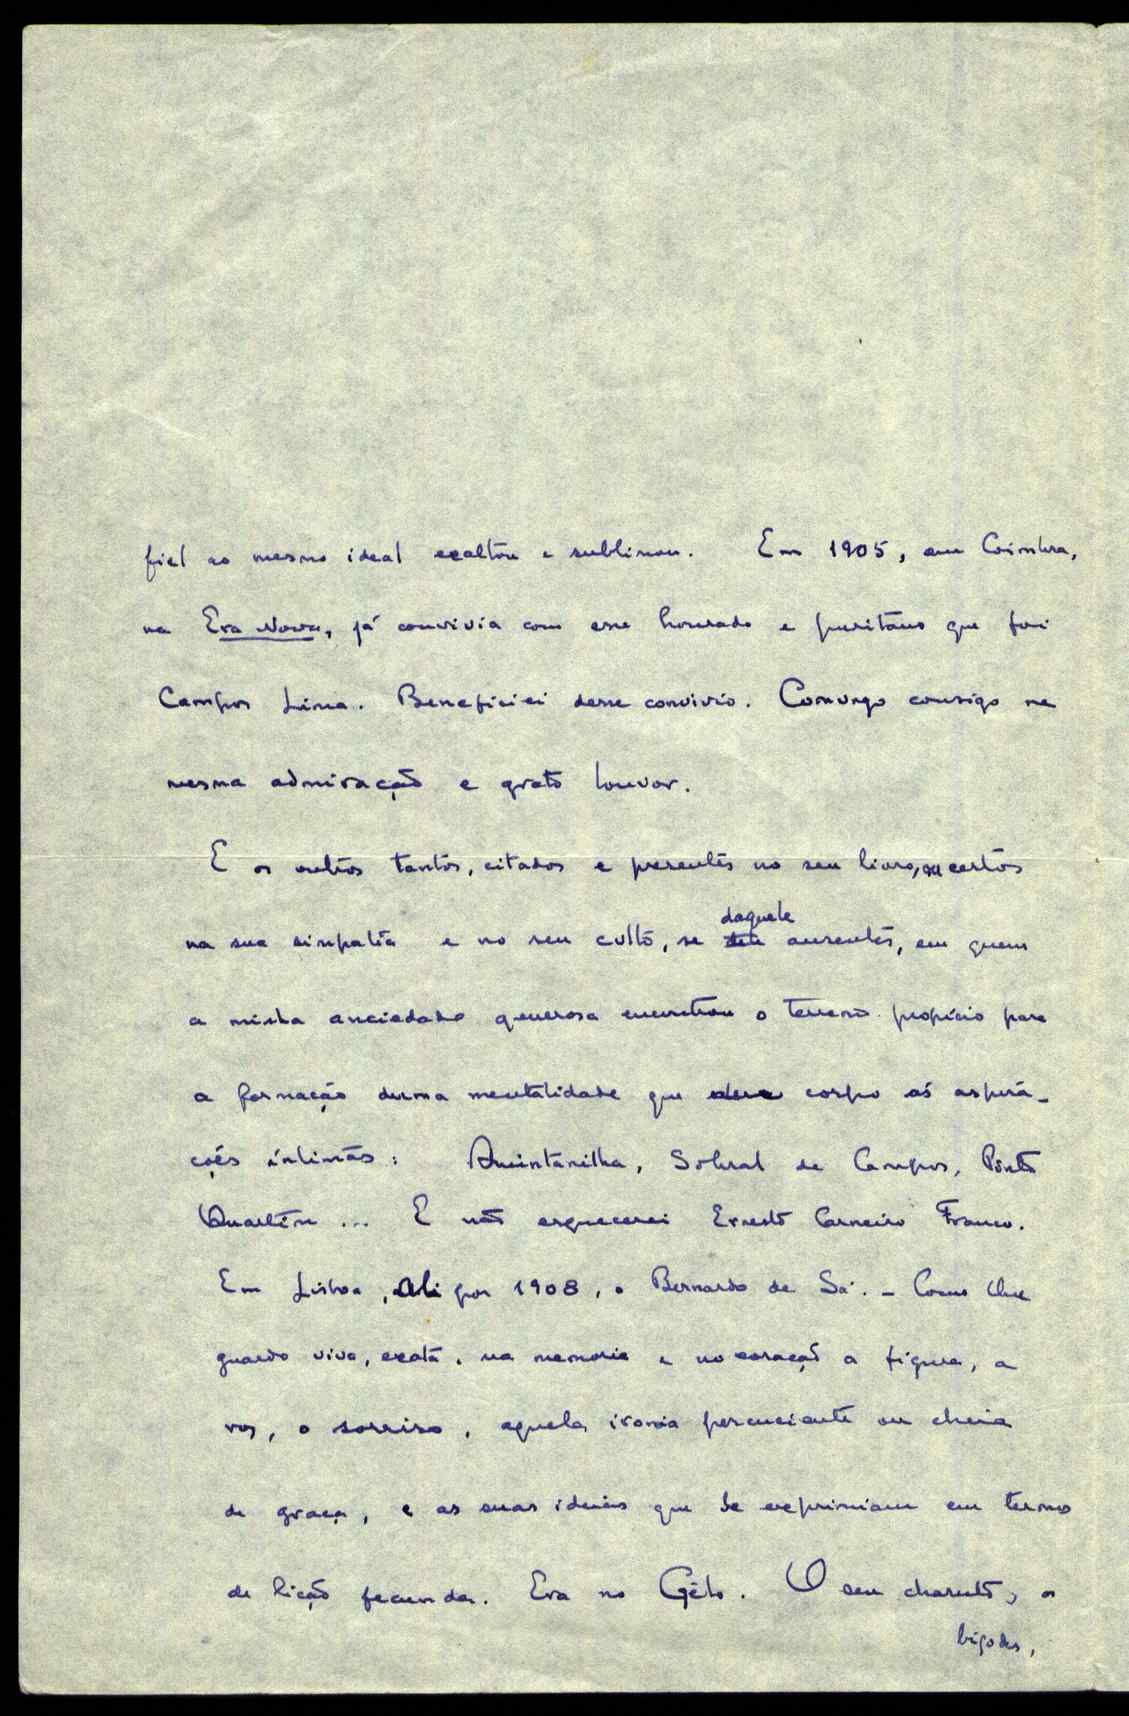 fiel ao mesmo ideal exaltou e sublimou. Em 1905, em Coimbra,
na Era Nova, já convivia com esse honrado e puritano que foi
Campos Lima. Beneficiei desse convivio. Comungo consigo na
mesma admiração e grato louvor.
E os outros tantos, citados e presentes no seu livro, certos
na sua simpatia e no seu culto, se daquele ausentes, em quem
a minha anciedade generosa encontrou o terreno propício para
a formação duma mentalidade que corpo ás aspira-
ções íntimas: Quintanilha, Sobral de Campos, Pinto
Quartin ... E não esquecerei Ernesto Carneiro Franco.
Em Lisboa, Ali por 1908, o Bernardo de Sá. - Como lhe
guardo viva, exata, na memoria e no coração a figura, a
voz, o sorriso, aquela ironia percuciente ou cheia
de graça, e as suas ideias que se exprimiam em termos
de lição fecunda. Era no Gêlo. O seu charuto, os
bigodes,